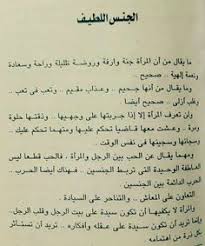 الجنس اللطيف
ما يقال من أن المرأة جنة وارفة وروضة ظليلة وراحة وسعادة
ونعمة إلهية .. صحيح ..
وما يقال من أنها جحيم .. وعذاب مقيم .. وتعب فى تعب ..
وقلب أزلى .. صحيح أيضا ..
ولن تعرف المرأة إلا إذا جربتها على وجهيها .. وذقتها حلوة
ومرة .. وعشت معها قاضيا تحكم عليها ومتهما تحكم عليك ..
وسجانها وسجينها فى نفس الوقت ..
ومهما يقال عن الحب بين الرجل والمرأة .. فالحب قطعا ليس
العاطفة الوحيدة التى تربط الاثنين .. فهناك أيضا الحرب ..
الحرب الدائمة بين الجنسين ..
العض والخربشة .. والتناحر على السيادة ..
والمرأة لا يكفيها أن تكون سيدة على بيت الرجل وقلب الرجل ..
وإنما تريد أن تكون سيدة على عقله وأفكاره .. تريد أن تستأثر
بكل ذرة من اهتمامه